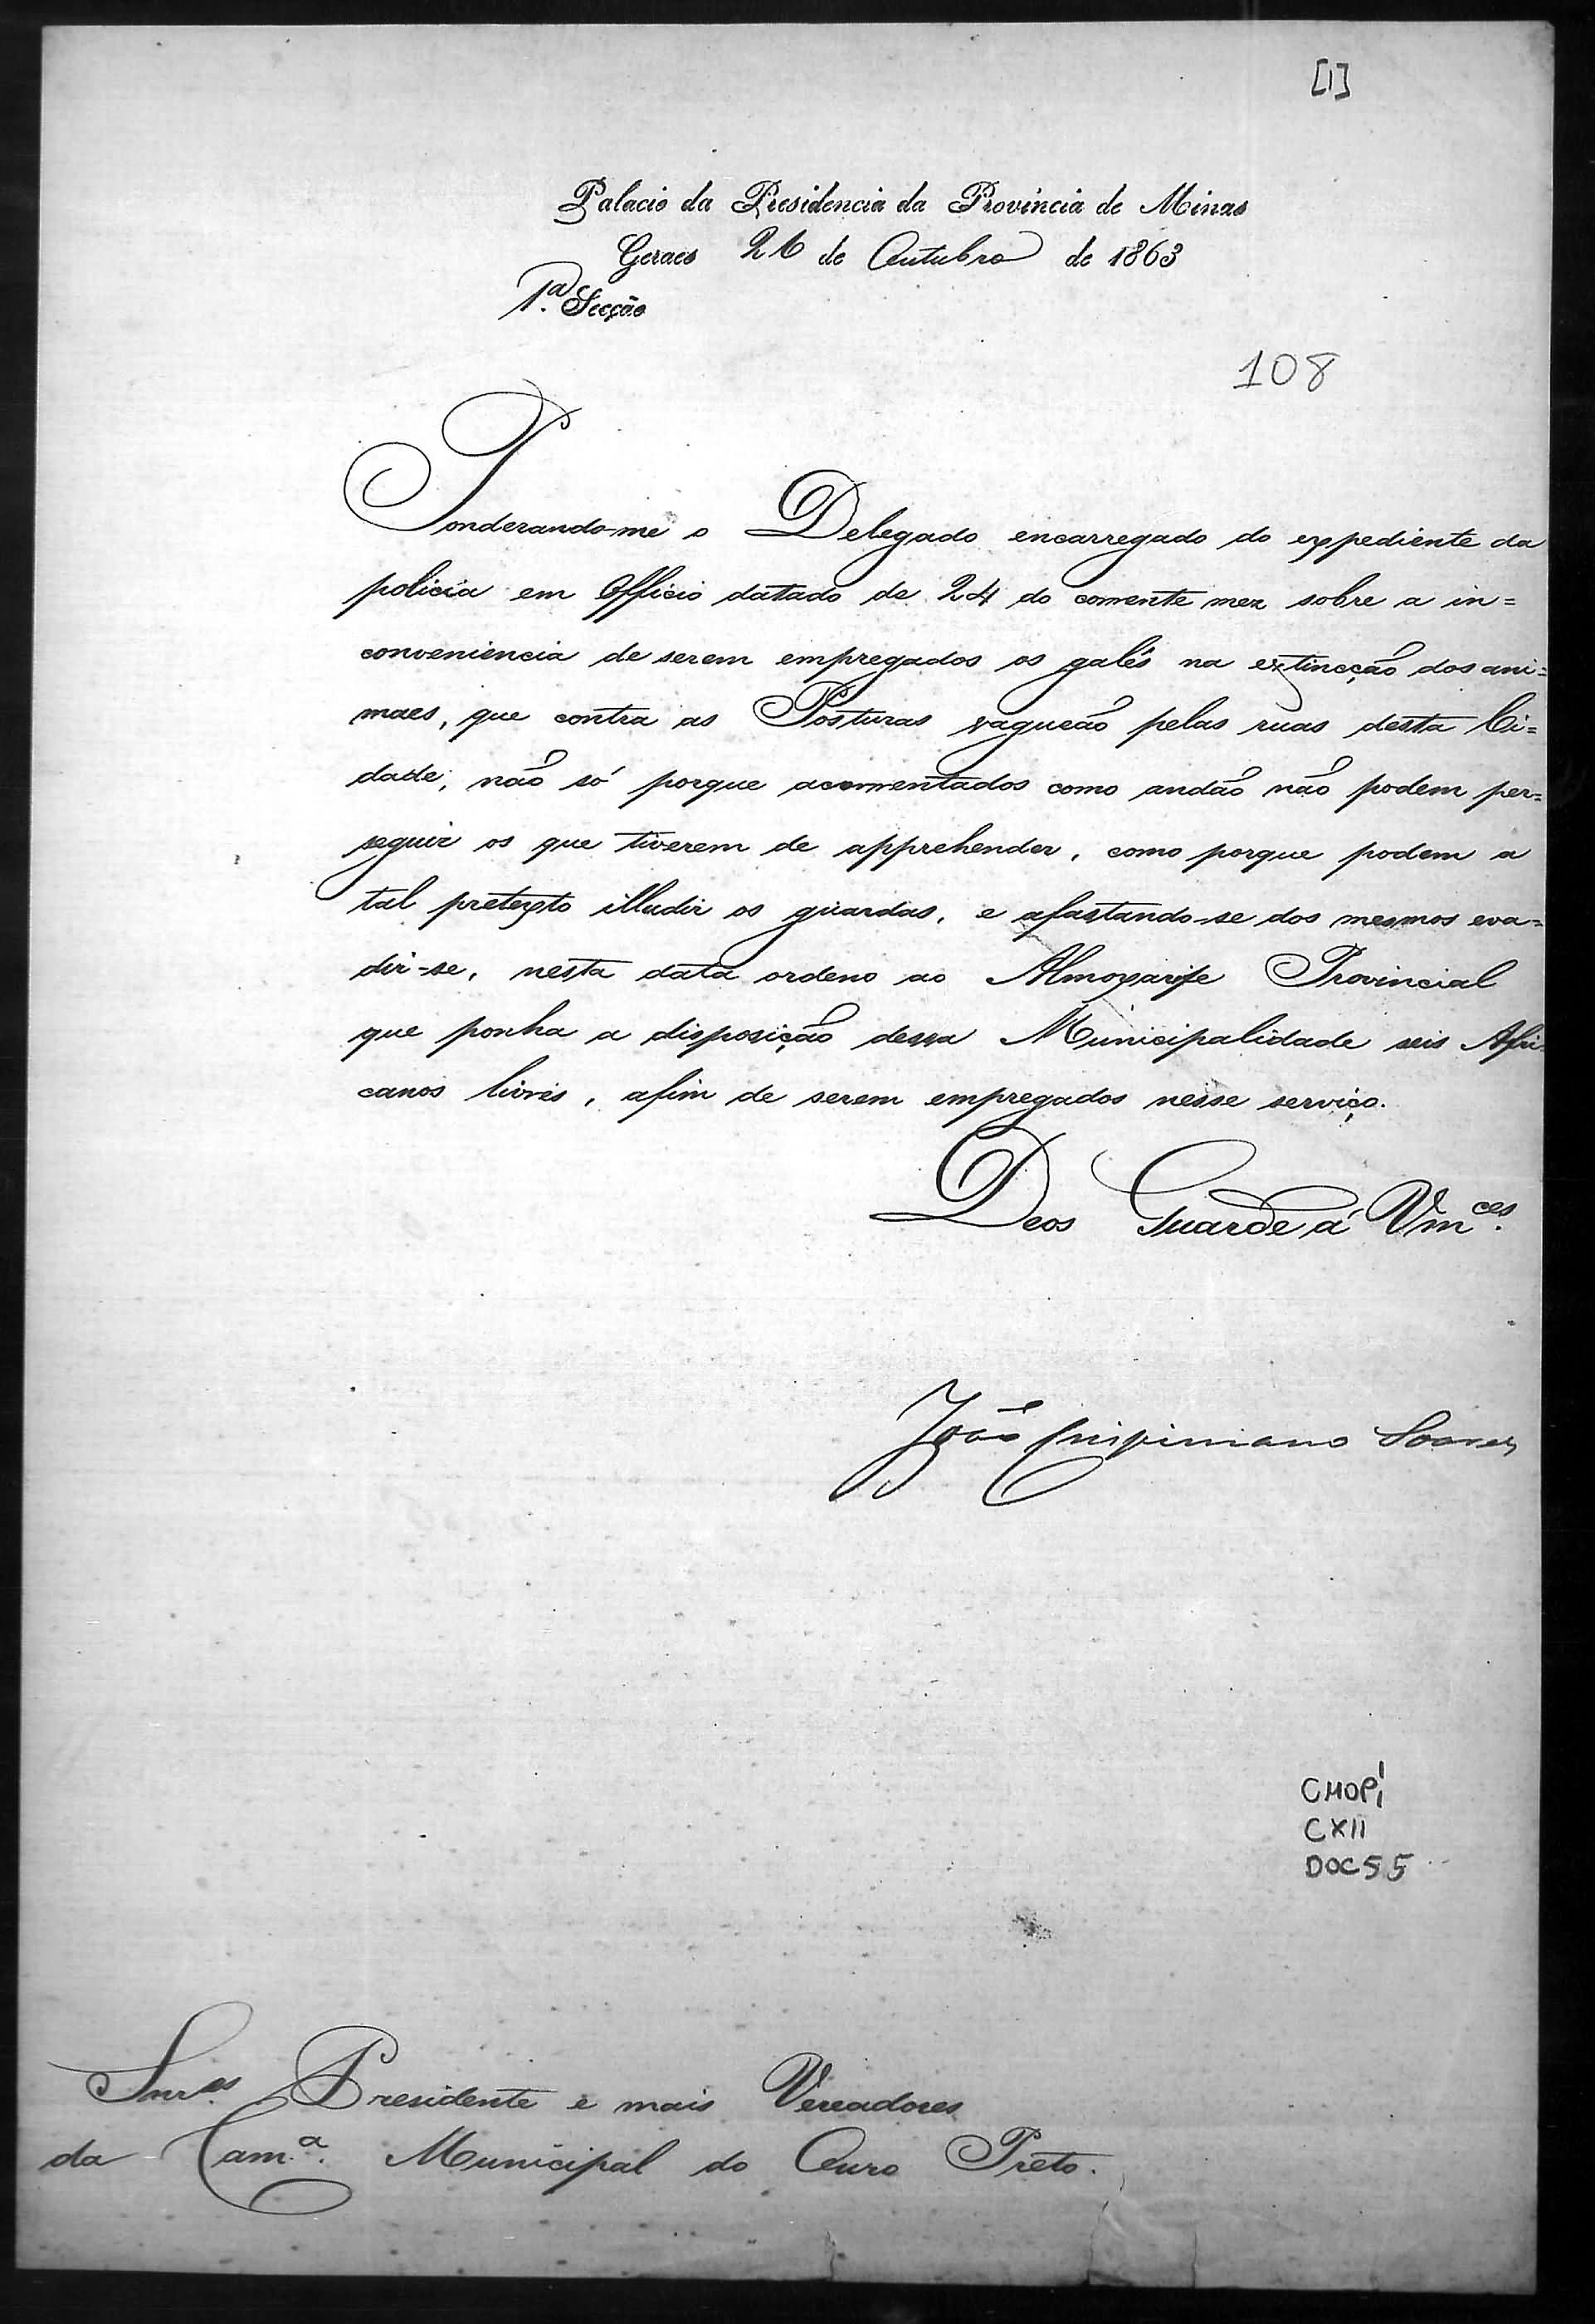 [1]
Palacio da Presidencia da Provincia de Minas
Geraes 26 de Outubro de 1863
1ª. Secção
108
Ponderando-me o Delegado encarregado do expediente da
policia em Officio datado de 24 do corrente mez sobre a in=
conveniencia de serem empregados os galés na extincção dos ani=
maes, que contra as Posturas vagueão pelas ruas desta Ci=
dade, não só porque acorrentados como andão não podem per=
seguir os que tiverem de apprehender, como porque podem a
tal pretexto illudir os guardas, e afastando-se dos mesmos eva=
dir-se, nesta data ordeno ao Almoxarife Provincial
que ponha a disposição dessa Municipalidade seis Afri
canos livres, afim de serem empregados nesse serviço.
Deos Guarde á Vmces.
João Crispiniano Soares
CMOP 1
CXII
DOC 55
Snres. Presidente e mais Vereadores
da Cam.ª Municipal do Ouro Preto.